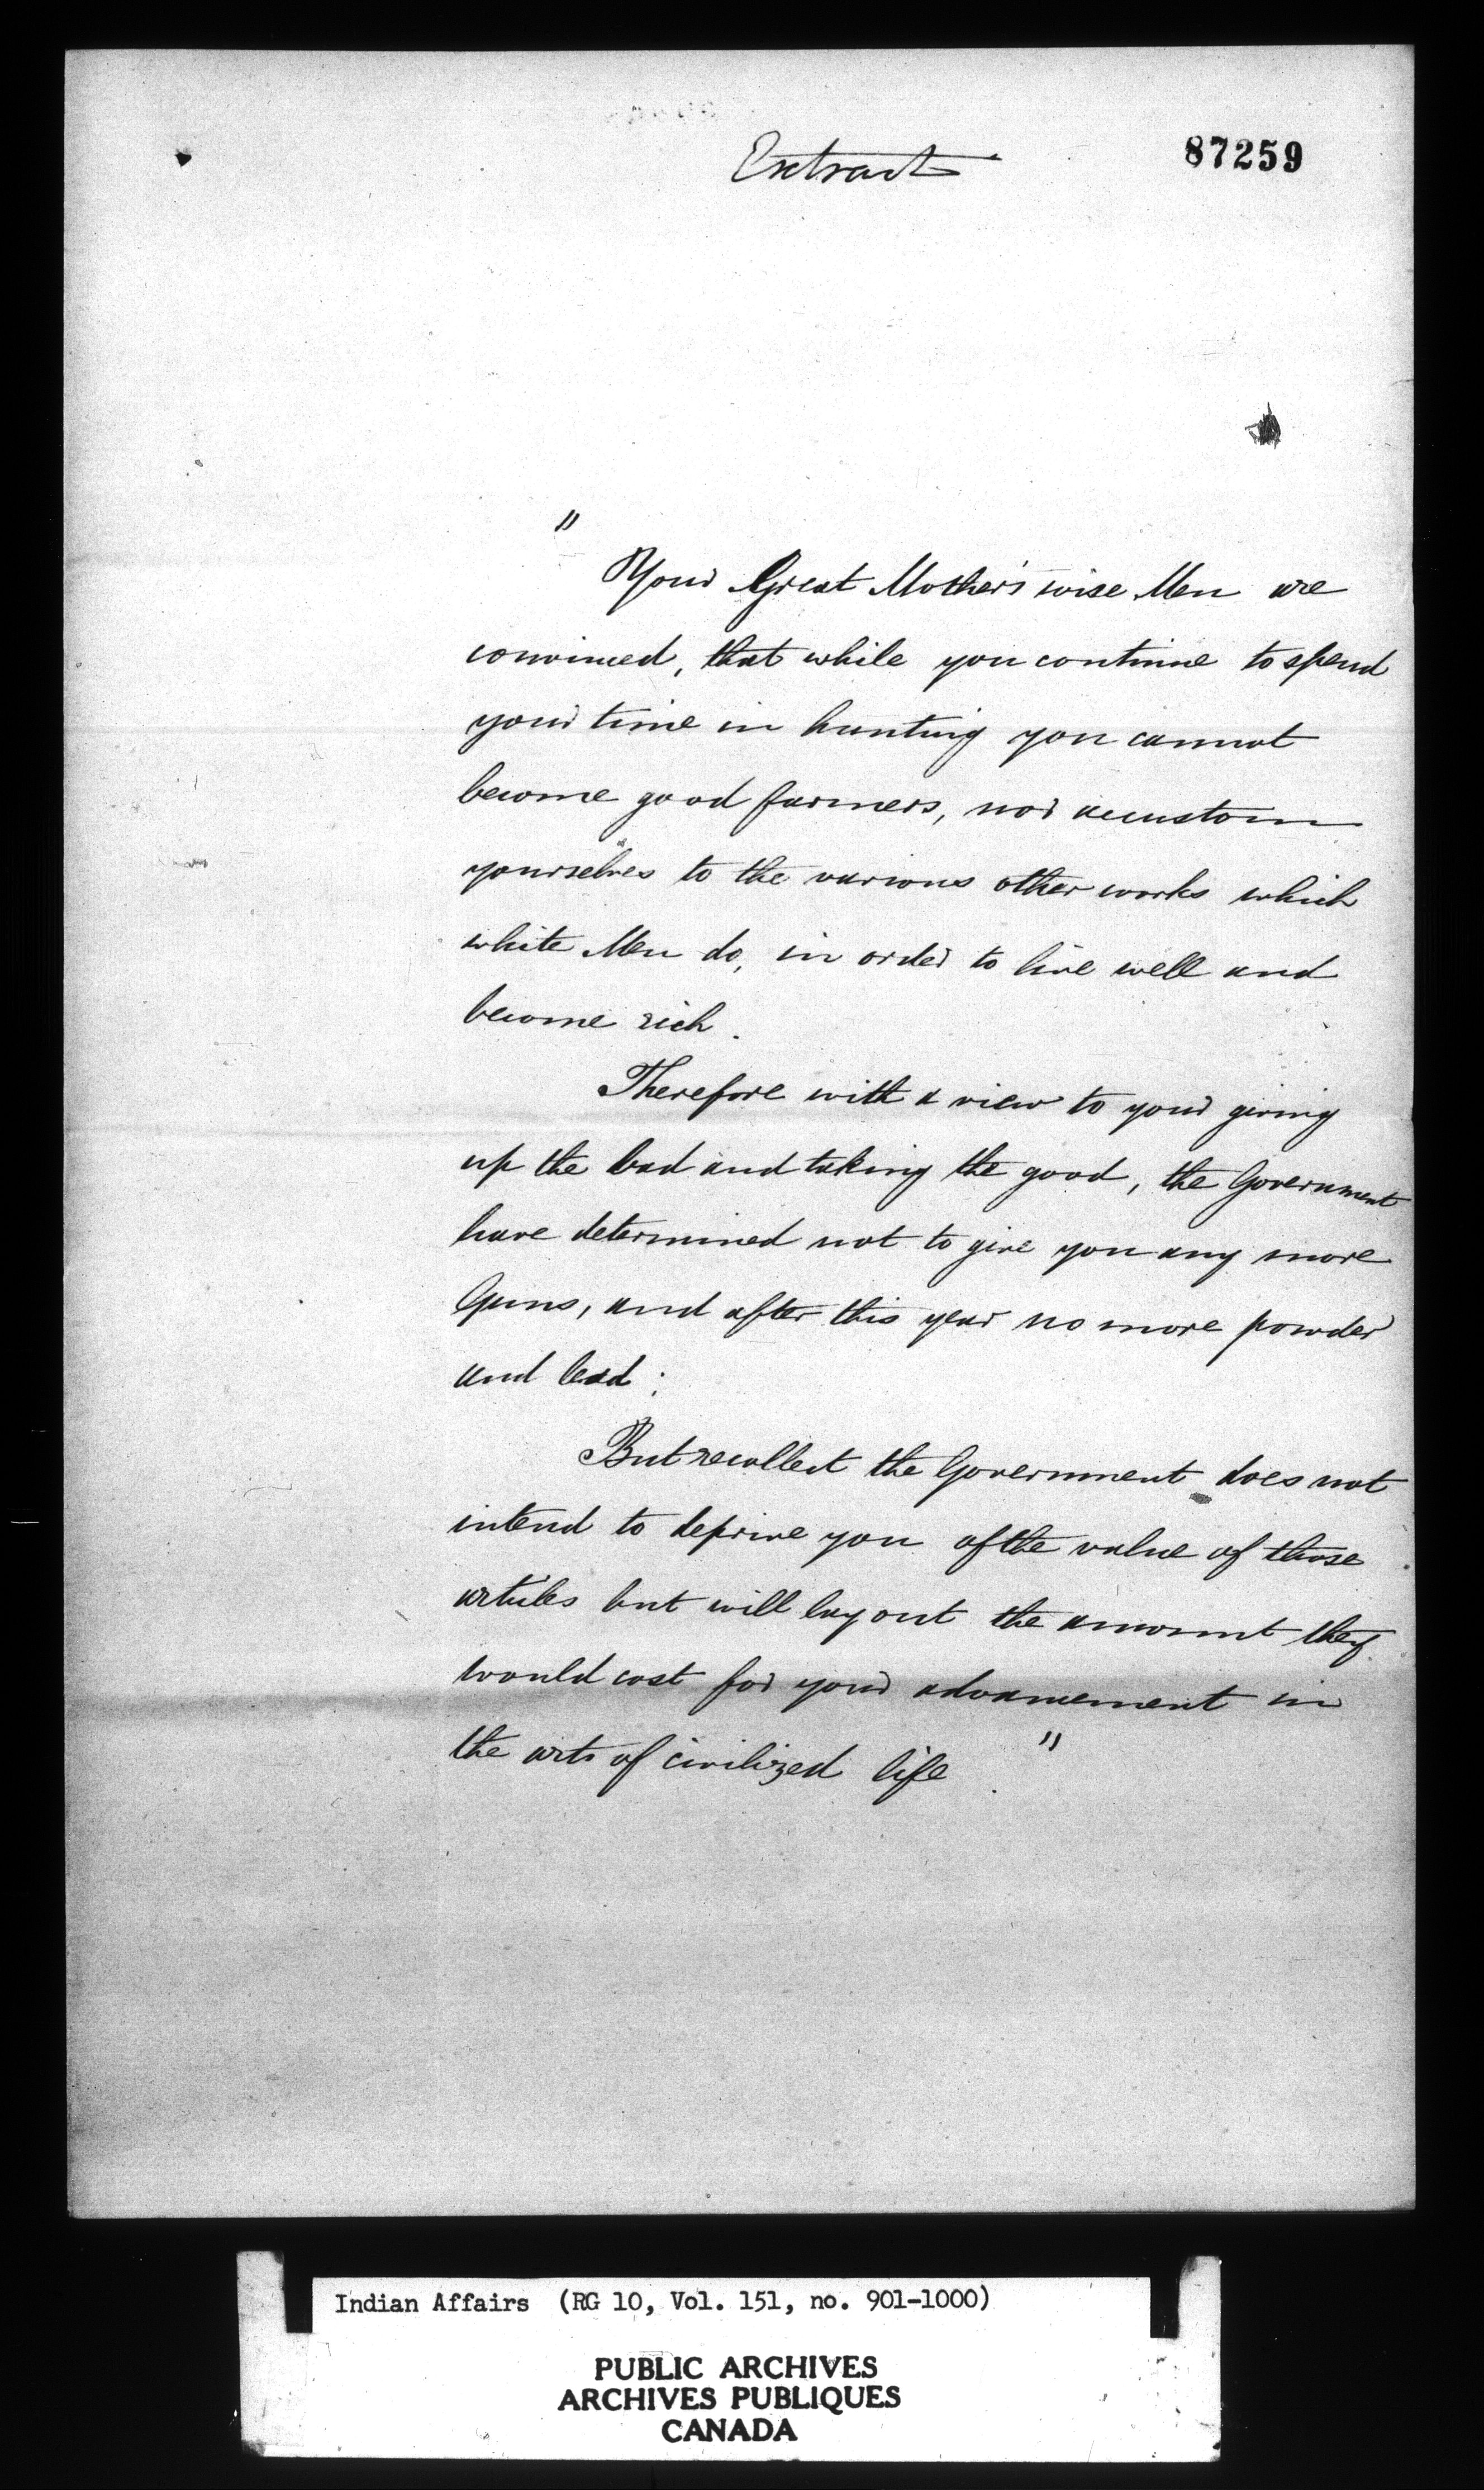 Extract
87259
"
Your Great Mother's wise Men are
convinced, that while you continue to spend
your time in hunting you cannot
become good farmers, nor accustom
yourselves to the various other works which
white Men do, in order to live well and
become rich.
Therefore with a view to your giving
up the bad and taking the good, the Government
have determined not to give you any more
Guns, and after this year no more powder
and lead:
But recollect the Government does not
intend to deprive you of the value of those
articles but will lay out the amount they
would cost for your advancement in
the arts of civilized life. "
Indian Affairs (RG 10, Vol. 151, no. 901-1000)
PUBLIC ARCHIVES
ARCHIVES PUBLIQUES
CANADA